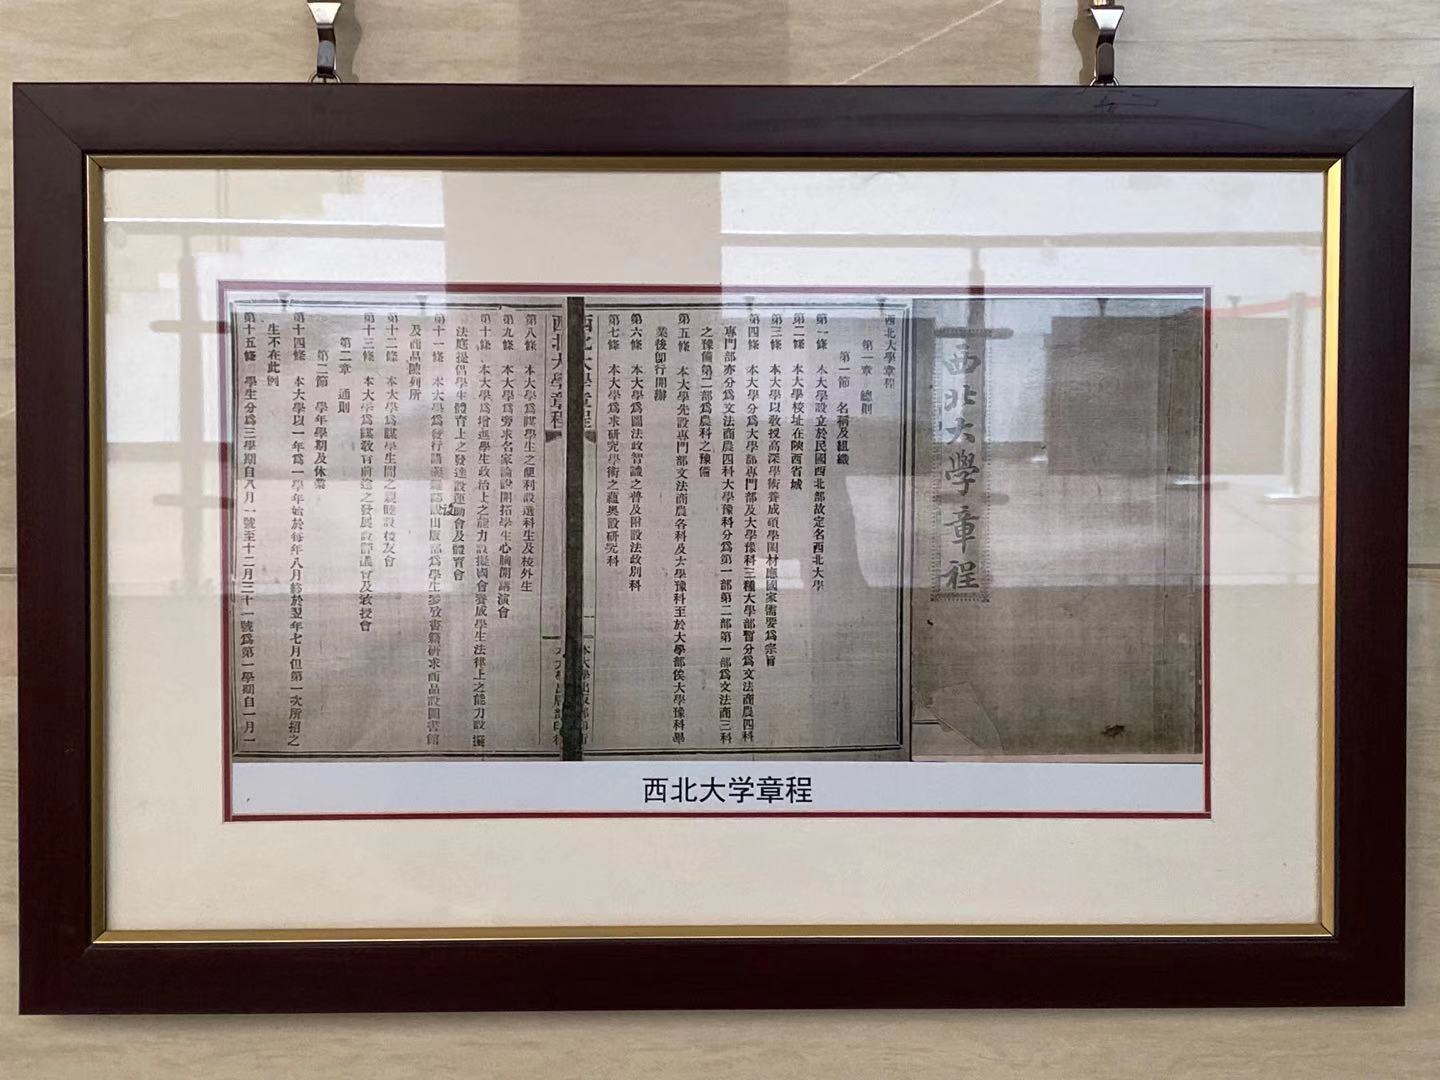 西北大學章程
西北大學章程
第一章　總則
第一節　名稱及組織
第一條　本大學設立於民國西北部故定名西北大學
第二條　本大學校址在陝西省城
第三條　本大學以教授高深學術養成碩學閎材應國家需要爲宗旨
第四條　本大學分爲大學部專門部及大學豫科三種大學部暫分爲文法商農四科
專門部亦分爲文法商農四科大學豫科分爲第一部第二部第一部爲文法商三科
之豫備第二部爲農科之豫備
第五條　本大學先設專門部文法商農各科及大學豫科至於大學部俟大學豫科畢
業後卽行開辦
第六條　本大學爲圖法政智識之普及附設法政別科
第七條　本大學爲求研究學術之蘊奧設研究科
西北大學章程
本大學出版部印行
西北大學章程
本大學出版部印行
第八條　本大學爲謀學生之便利設選科生及校外生
第九條　本大學爲旁求名家論說開拓學生心胸開講演會
第十條　本大學爲增進學生政治上之能力設擬國會養成學生法律上之能力設擬
法庭提倡學生體育上之發達設運動會及體育會
第十一條　本大學爲發行講義雜誌設出版部爲學生參攷書籍研求商品設圖書館
及商品陳列所
第十二條　本大學爲謀學生間之親睦設校友會
第十三條　本大學爲謀教育前途之發展設評議會及教授會
第二章　通則
第二節　學年學期及休業
第十四條　本大學以一年爲一學年始於每年八月終於翌年七月但第一次所招之
生不在此例
第十五條　學生分爲三學期自八月一號至十二月三十一號爲第一學期自一月一
西北大学章程